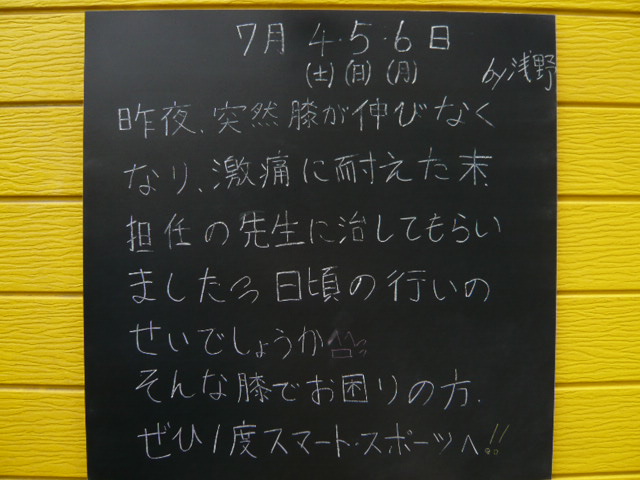 7月 4・5・6日
(土)(日)(月) by浅野
昨夜、突然膝が伸びなく
なり、激痛に耐えた末、
担任の先生に治してもらい
ました 日頃の行いの
せいでしょうか
そんな膝でお困りの方、
ぜひ1度スマート・スポーツへ!!